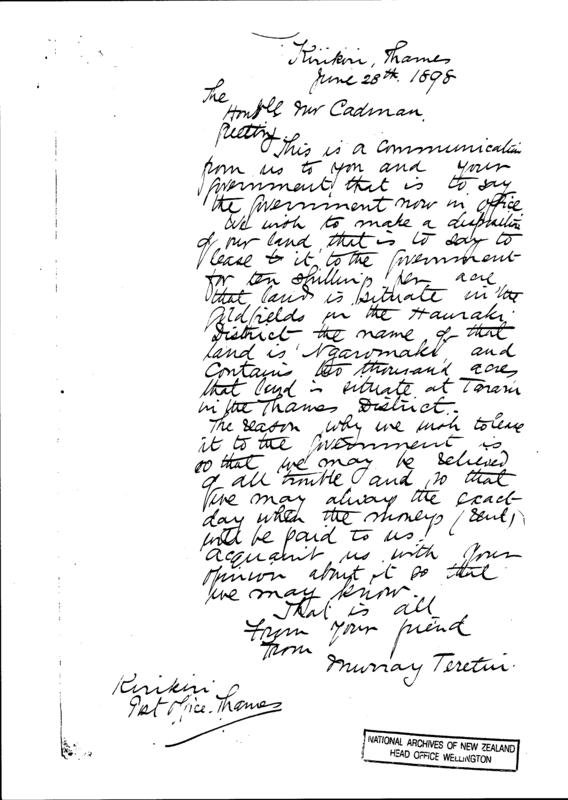 Kirikiri, Thames
June 28th. 1898
The
Honble Mr Cadman.
Greeting
This is a communication
from us to you and your
Government, that is to say
the Government now in office
We wish to make a disposition
of our land, that is to say to
lease it, to the Government
for ten shillings per acre
that land is situate in the
Goldfields in the Hauraki
District the name of that
land is Ngaromaki and
Contains two thousand acres
that land is situate at Tararu
in the Thames District.
The reason why we wish to lease
it to the Government is
so that we may be relieved
of all trouble and so that
we may always the exact
day when the moneys (rent)
will be paid to us.
acquaint us with your
opinion about it so that
we may know.
That is all
From your friend
From
Murray Teretui.
Kirikiri
Post Office. Thames
NATIONAL ARCHIVES OF NEW ZEALAND
HEAD OFFICE WELLINGTON